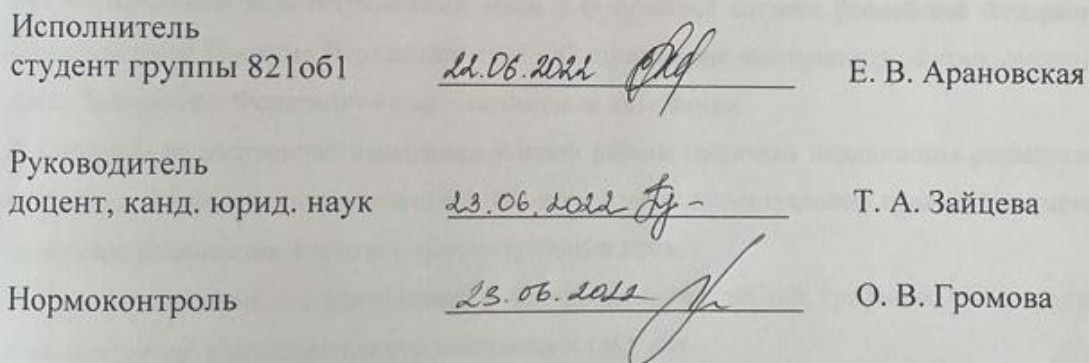 Исполнитель
студент группы 821об1 22.06.2022 Е. В. Арановская
Руководитель
доцент, канд. юрид. наук 23.06.2022 Т. А. Зайцева
Нормоконтроль 23.06.2022 О. В. Громова